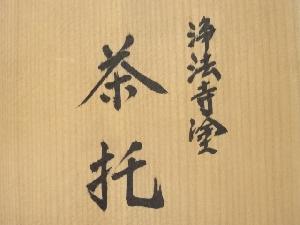 浄法寺塗
茶托